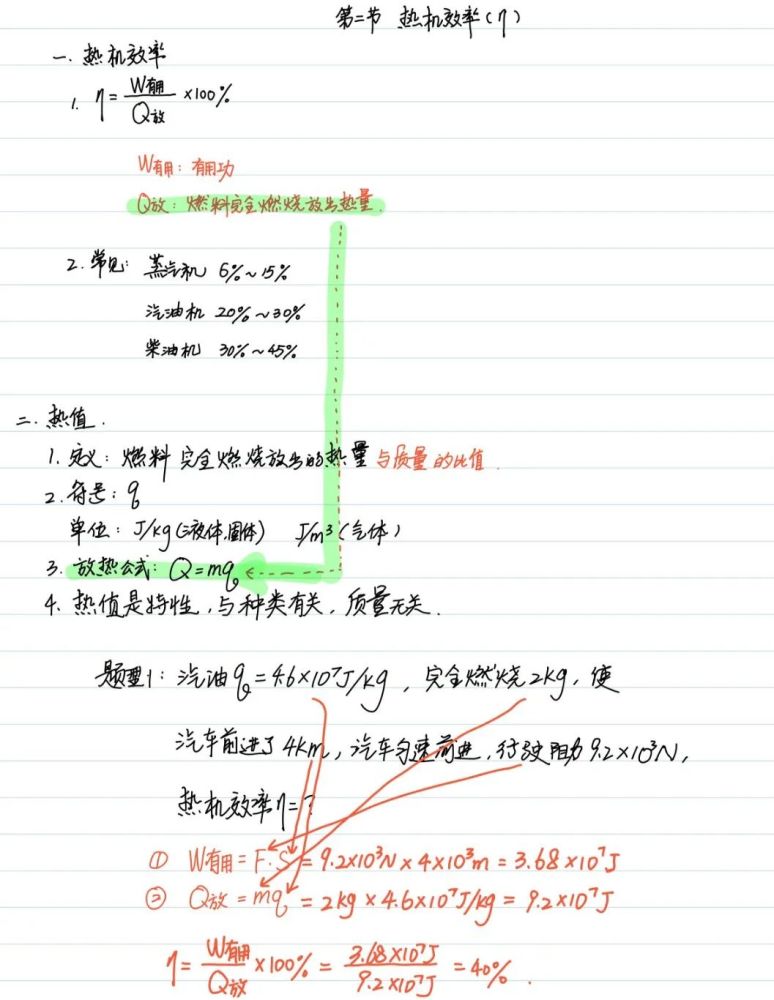 第二节 热机效率(η)
一. 热机效率
1. η = W有用/Q放 ×100%
W有用: 有用功
Q放: 燃料完全燃烧放出热量.
2. 常见: 蒸汽机 6%~15%
汽油机 20%~30%
柴油机 30%~45%
二. 热值.
1. 定义: 燃料完全燃烧放出的热量与质量的比值.
2. 符号: q
单位: J/kg(液体.固体) J/m³(气体)
3. 放热公式: Q=mq
4. 热值是特性, 与种类有关, 质量无关.
题型1: 汽油q=4.6×10⁷J/kg, 完全燃烧2kg, 使
汽车前进了4km, 汽车匀速前进, 行驶阻力9.2×10³N,
热机效率η=?
① W有用=F·S=9.2×10³N×4×10³m=3.68×10⁷J
② Q放=mq=2kg×4.6×10⁷J/kg=9.2×10⁷J
η = W有用/Q放 ×100% = 3.68×10⁷J/9.2×10⁷J = 40%.